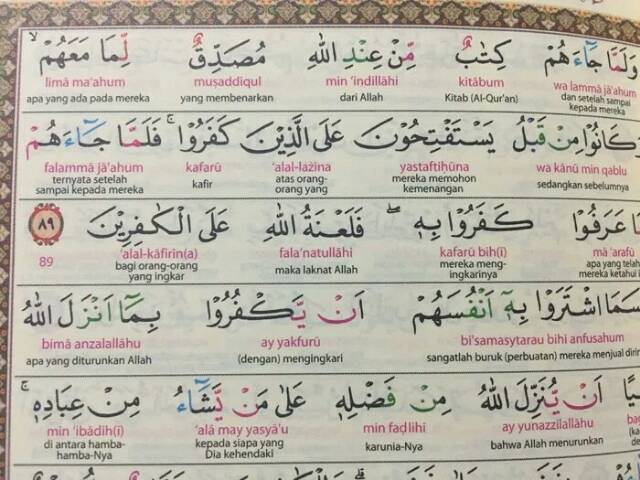 وَلَمَّا جَاۤءَهُمْ كِتٰبٌ مِّنْ عِنْدِ اللّٰهِ مُصَدِّقٌ لِّمَا مَعَهُمْۙ
wa lammā jā'ahum kitābum min 'indillāhi muṣaddiqul limā ma'ahum
dan setelah sampai kepada mereka Kitab (Al-Qur'an) dari Allah yang membenarkan apa yang ada pada mereka
كَانُوْا مِنْ قَبْلُ يَسْتَفْتِحُوْنَ عَلَى الَّذِيْنَ كَفَرُوْاۚ فَلَمَّا جَاۤءَهُمْ
wa kānū min qablu yastaftiḥūna 'alal-lażīna kafarū falammā jā'ahum
sedangkan sebelumnya mereka memohon kemenangan atas orang-orang yang kafir ternyata setelah sampai kepada mereka
مَا عَرَفُوْا كَفَرُوْا بِهٖ ۖ فَلَعْنَةُ اللّٰهِ عَلَى الْكٰفِرِيْنَ ٨٩
mā 'arafū kafarū bih(ī) fala'natullāhi 'alal-kāfirīn(a) 89
apa yang telah mereka ketahui mereka mengingkarinya maka laknat Allah bagi orang-orang yang ingkar
سَمَا اشْتَرَوْا بِهٖٓ اَنْفُسَهُمْ اَنْ يَّكْفُرُوْا بِمَآ اَنْزَلَ اللّٰهُ
bi'samasytarau bihi anfusahum ay yakfurū bimā anzalallāhu
sangatlah buruk (perbuatan) mereka menjual (dengan) mengingkari apa yang diturunkan Allah
اَنْ يُّنَزِّلَ اللّٰهُ مِنْ فَضْلِهٖ عَلٰى مَنْ يَّشَاۤءُ مِنْ عِبَادِهٖۚ
ay yunazzilallāhu min faḍlihi 'alā may yasyā'u min 'ibādih(ī)
bahwa Allah menurunkan karunia-Nya kepada siapa yang Dia kehendaki di antara hamba-hamba-Nya